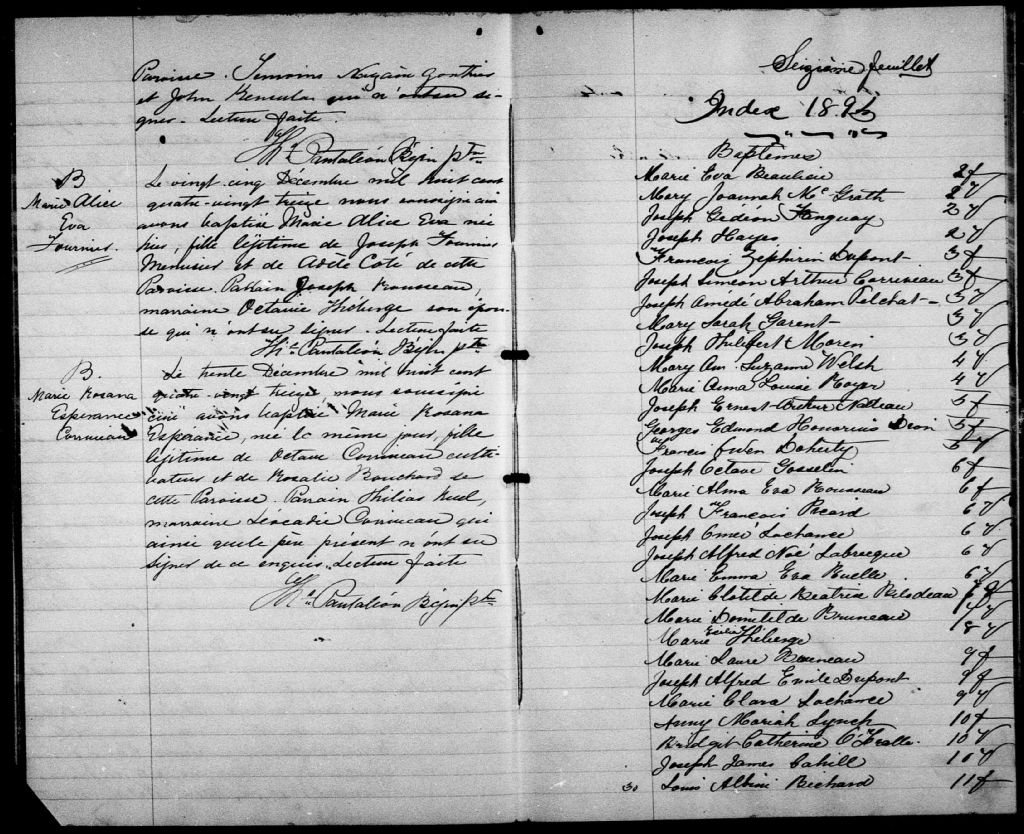 Paroisse. Temoins Nazaire Gontier
et John qui n'ont su si-
gner. Lecture faite.
Ths Pantaléon Bégin ptre
B
Marie Alice
Eva
Fournier.
Le vingt cinq Décembre mil huit cent
quatre-vingt treize nous soussigné
avons baptisé Marie Alice Eva née
hier, fille légitime de Joseph Fournier
Menusier et de Adèle Coté de cette
Paroisse. Parrain Joseph Rousseau,
marraine Octavie Théberge son épou-
se qui n'ont su signer. Lecture faite
Ths Pantaléon Bégin ptre
B.
Marie Rosana
Esperance
Corriveau
Le trente Décembre mil huit cent
quatre-vingt treize, nous soussigné
avons baptisé Marie Rosana
Esperance, née le même jour, fille
légitime de Octave Corriveau culti-
vateur et de Rosalie Bouchard de
cette Paroisse. Parrain Philias Ruel,
marraine Léocadie Corriveau qui
ainsi que le père présent n'ont su
signer de ce enquis. Lecture faite
Ths Pantaléon Bégin ptre
Seizième feuillet
Index 189
Baptêmes
Marie Eva Beaulieu 2f
Mary Joannah Mc Grath 2v
Joseph Gedeon Tanguay 2v
Joseph Hayes 2v
Francois Zephirin Dupont 3f
Joseph Simeon Arthur Corriveau 3f
Joseph Amedé Abraham Pelchat 3v
Mary Sarah Garent 3v
Joseph Philibert Morin 3v
Mary Ann Suzanne Welsh 4v
Marie Anna Louise Royer 4v
Joseph Ernest Arthur Nadeau 5f
Georges Edmond Honorius Dion 5f
Francis Owen Doherty 5v
Joseph Octave Gosselin 6f
Marie Alma Eva Rousseau 6f
Joseph Francois Picard 6v
Joseph Omer Lachance 6v
Joseph Alfred Noé Labrecque 6v
Marie Emma Eva Ruelle 6v
Marie Clotilde Beatrice Bilodeau
Marie Domitilde Bruneau
Marie Théberge 8v
Marie Laure Bruneau 9f
Joseph Alfred Emile Dupont 9f
Marie Clara Lachance 9v
Anny Moriah Lynch 10f
Bridgit Catherine 10v
Joseph James Cahill 10v
30 Louis Albini Bechard 11f